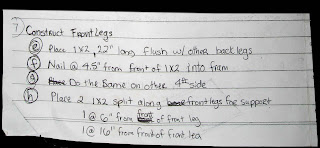 7 Construct Front Legs
e Place 1X2, 22" long flush w/ other back legs
f Nail @ 4.5" from front of 1X2 into fram
g Do the Same on other 4th side
h Place 2 1X2 split along front legs for support
1 @ 6" from front of front leg
1 @ 16" from front of front leg